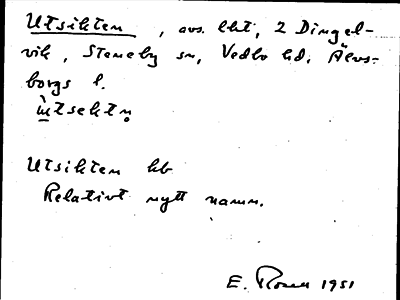 Utsikten, avs. lht, 2 Dingel-
vik, Steneby sn, Vedbo hd, Älvs-
borgs l.
ùtsektn̥
Utsikten hb
Relativt nytt namn.
E. Rosell 1951